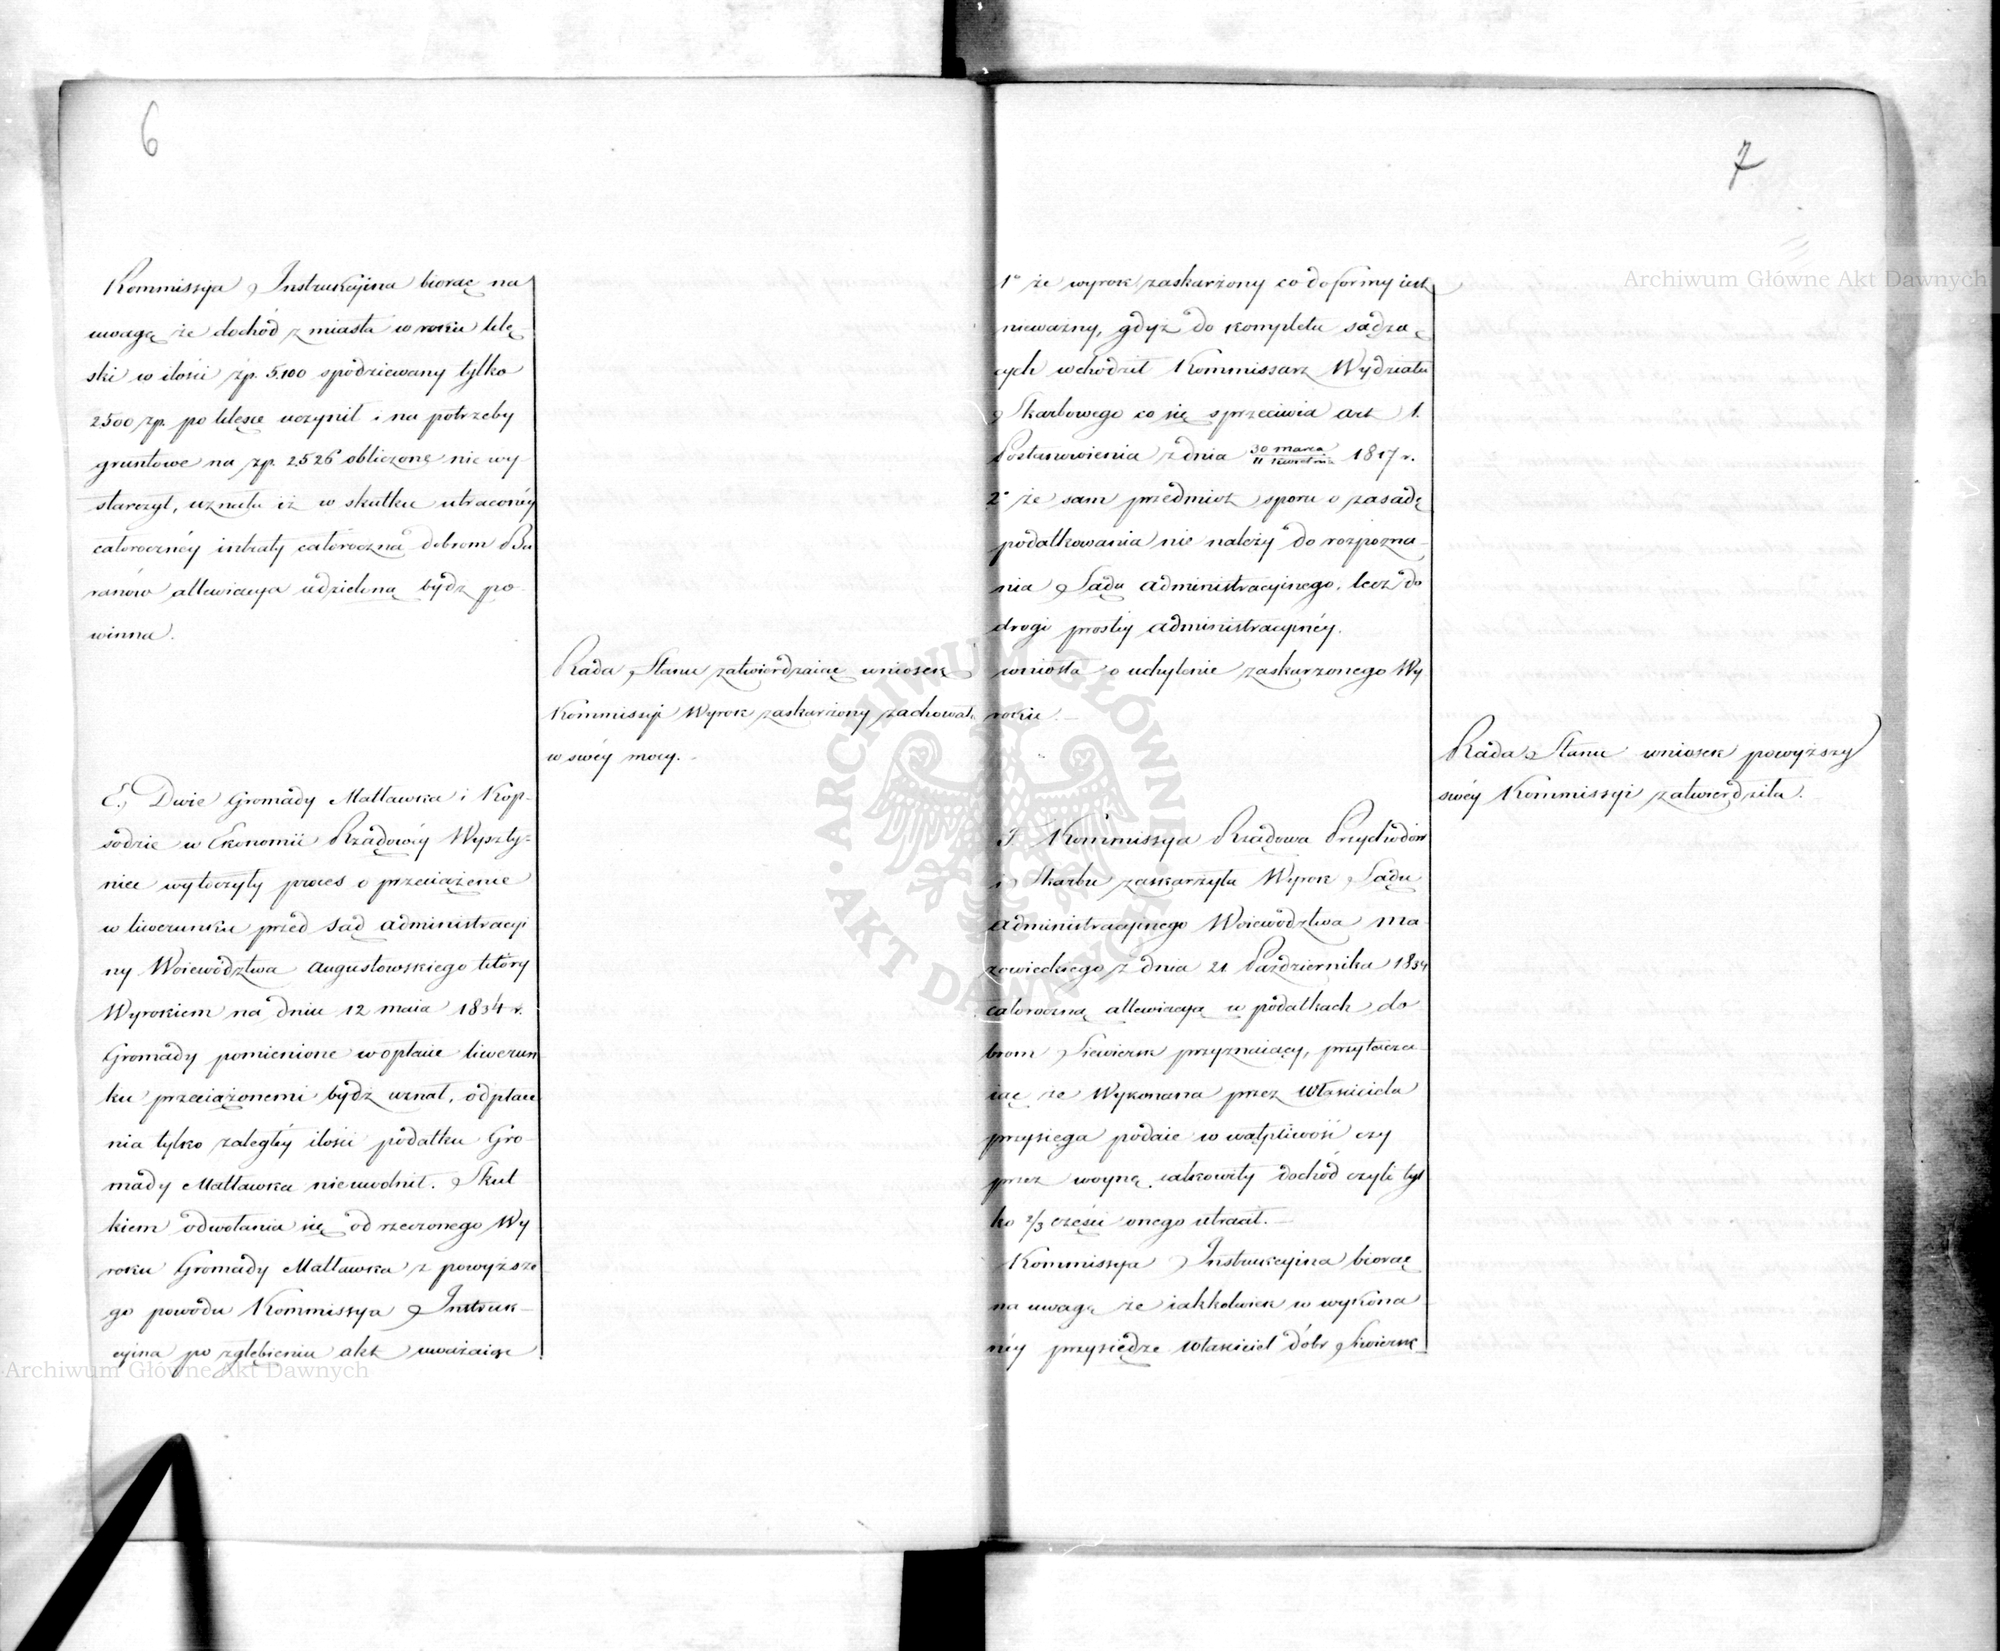 6
Kommissya Instrukcyina biorąc na
uwagę że dochód z miasta w roku klę
ski w ilości żp. 5,100 spodziewany tylko
2500 zp. po klęsce uczynił i na potrzeby
gruntowe na zp. 2526 obliczone nie wy
starczył, uznała iż w skutku utraconéy
całorocznéy intraty całoroczna dobrom Ba
ranów allewiacya udzieloną bydź po
winna.
Rada Stanu zatwierdzaiąc wniosek
Kommissyi Wyrok zaskarżony zachowała
w swéy mocy.
E., Dwie Gromady Matławka i Kop-
sodzie w Ekonomii Rządowéy Wyszty-
niec wytoczyły proces o przeciążenie
w liwerunku przed Sąd administracyi
ny Woiewództwa Augustowskiego który
Wyrokiem na dniu 12 maia 1834 r.
Gromady pomienione w opłacie liwerun
ku przeciążonemi bydź uznał, od płace
nia tylko zaległéy ilości podatku Gro-
mady Matławka nieuwolnił. Skut
kiem odwołania się od rzeczonego Wy
roku Gromady Matławka z powyższe
go powodu Kommissya Instruk-
cyina po zgłębieniu akt uważaiąc
7
1° że wyrok zaskarżony co do formy iest
nieważny, gdyż do kompletu sądzą
cych wchodził Kommissarz Wydziału
Skarbowego co się sprzeciwia art 1.
Postanowienia z dnia 30 marca/11 kwietnia 1817 r.
2° że sam przedmiot sporu o zasadę
podatkowania nie należy do rozpozna-
nia Sądu administracyinego, lecz do
drogi prostéy administracyinéy.
wniosła o uchylenie zaskarżonego Wy
roku.
Rada Stanu wniosek powyższy
swéy Kommissyi zatwierdziła.
Kommissya Rządowa Przychodów
i Skarbu zaskarżyła Wyrok Sądu
administracyinego Woiewództwa Ma
zowieckiego z dnia 21 Października 1834
całoroczną allewiacyą w podatkach do
brom Siewiersk przyznaiący, przytacza
iąc że Wykonana przez Właściciela
przysięga podaie w wątpliwość czy
przez woynę całkowity dochód czyli tyl
ko 2/3 części onego utracał.
Kommissya Instrukcyina biorąc
na uwagę że iakkolwiek w wykona
néy przysiędze Właściciel dóbr
Archiwum Główne Akt Dawnych
Archiwum Główne Akt Dawnych
ARCHIWUM GŁÓWNE AKT DAWNYCH